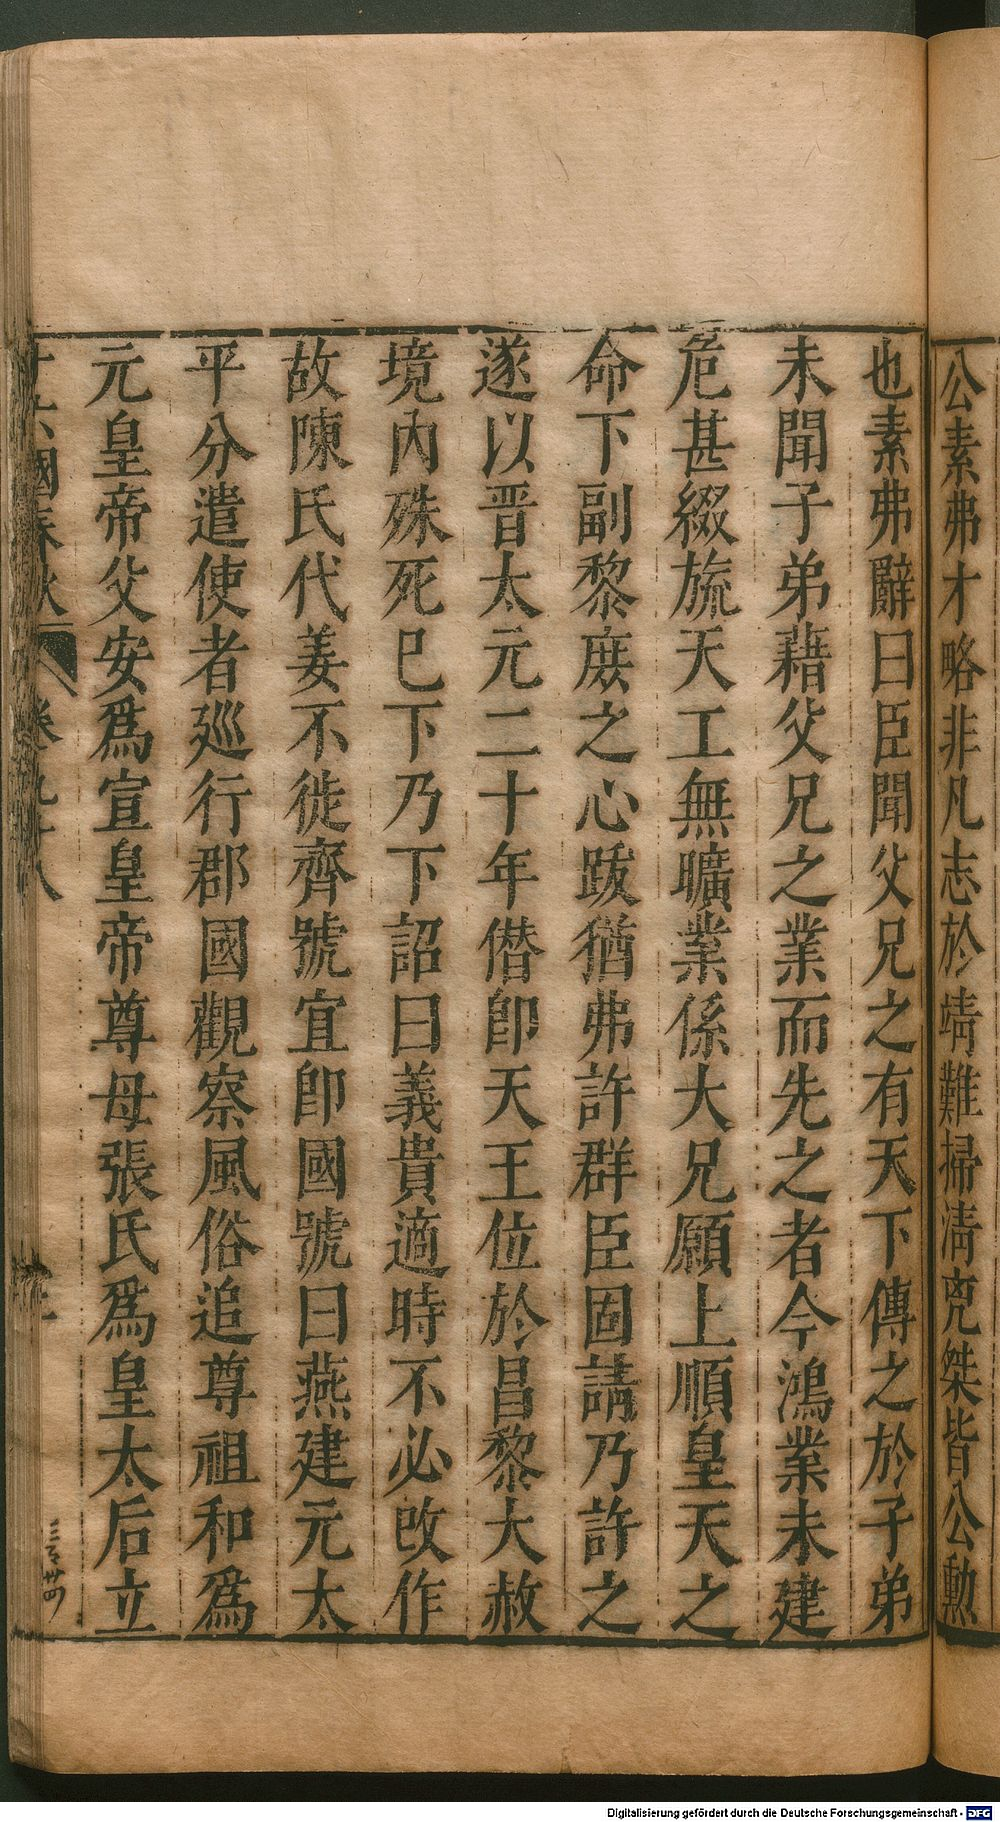 公素弗才略非凡志於靖難掃淸兇桀皆公勲
也素弗辭曰臣聞父兄之有天下傳之於子弟
未聞子弟藉父兄之業而先之者今鴻業未建
危甚綴旒天工無曠業係大兄願上順皇天之
命下副黎庶之心跋猶弗許群臣固請乃許之
遂以晋太元二十年僭卽天王位於昌黎大赦
境內殊死巳下乃下詔曰義貴適時不必改作
故陳氏代姜不徙齊號宜卽國號曰燕建元太
平分遣使者廵行郡國觀察風俗追尊祖和爲
元皇帝父安爲宣皇帝尊母張氏爲皇太后立
十六國春秋 卷九十八
Digitalisierung gefördert durch die Deutsche Forschungsgemeinschaft - DFG